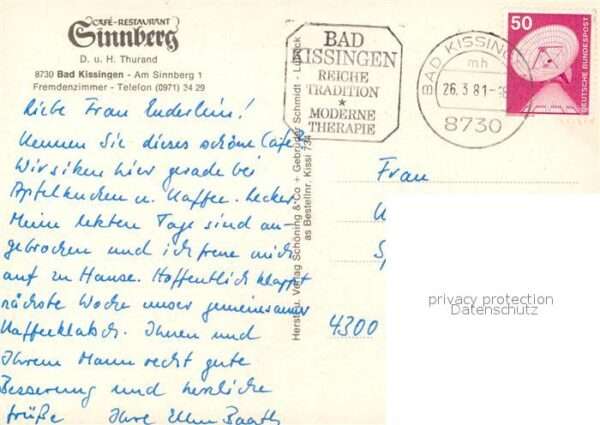 CAFÉ-RESTAURANT
Sinnberg
D. u. H. Thurand
8730 Bad Kissingen - Am Sinnberg 1
Fremdenzimmer - Telefon (0971) 24 29
Liebe Frau Enderlein!
Kennen Sie dieses schöne Café?
Wir sitzen hier gerade bei
Apfelkuchen u. Kaffee. Lecker.
Meine letzten Tage sind an-
gebrochen und ich freue mich
auf zu Hause. Hoffentlich klappt
nächste Woche unser gemeinsamer
Kaffeeklatsch. Ihnen und
Ihrem Mann recht gute
Besserung und herzliche
Grüße Ihre Ellen
Herst. u. Verlag Schöning & Co + Gebrüder Schmidt - Lübeck
as Bestellnr. Kissi 734
BAD
KISSINGEN
REICHE
TRADITION
★
MODERNE
THERAPIE
BAD KISSINGEN
mh
26.3.81-18
8730
50
DEUTSCHE BUNDESPOST
Frau
4300
privacy protection
Datenschutz